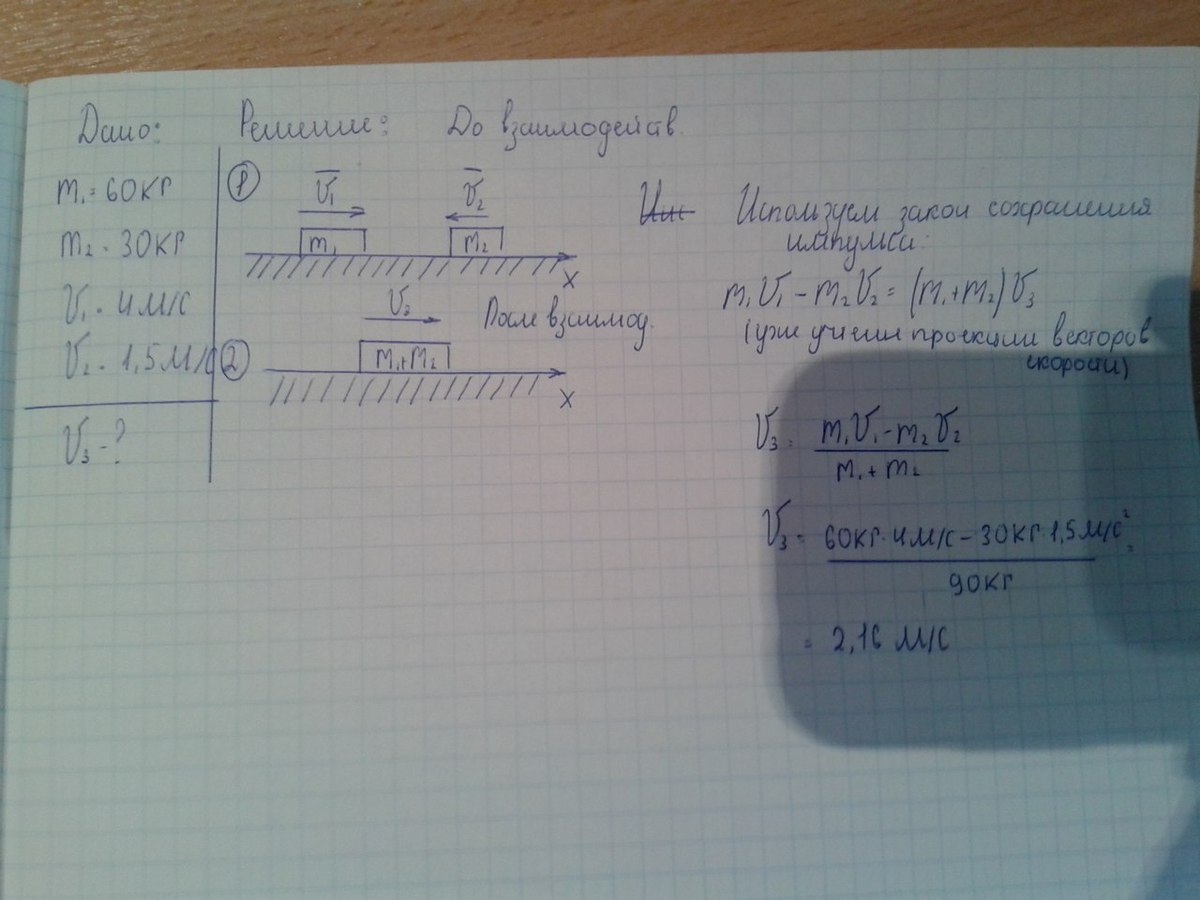 Дано:
m₁ = 60 кг
m₂ = 30 кг
V₁ = 4 м/с
V₂ = 1,5 м/с
V₃ - ?
Решение: До взаимодейств.
1
V₁ V₂
m₁ m₂
x
V₃ После взаимод.
2
m₁+m₂
x
Используем закон сохранения
импульса:
m₁V₁ - m₂V₂ = (m₁+m₂)V₃
(уже учли проекции векторов
скорости)
V₃ = (m₁V₁ - m₂V₂) / (m₁ + m₂)
V₃ = (60кг · 4м/с - 30кг · 1,5м/с²) / 90кг =
= 2,16 м/с